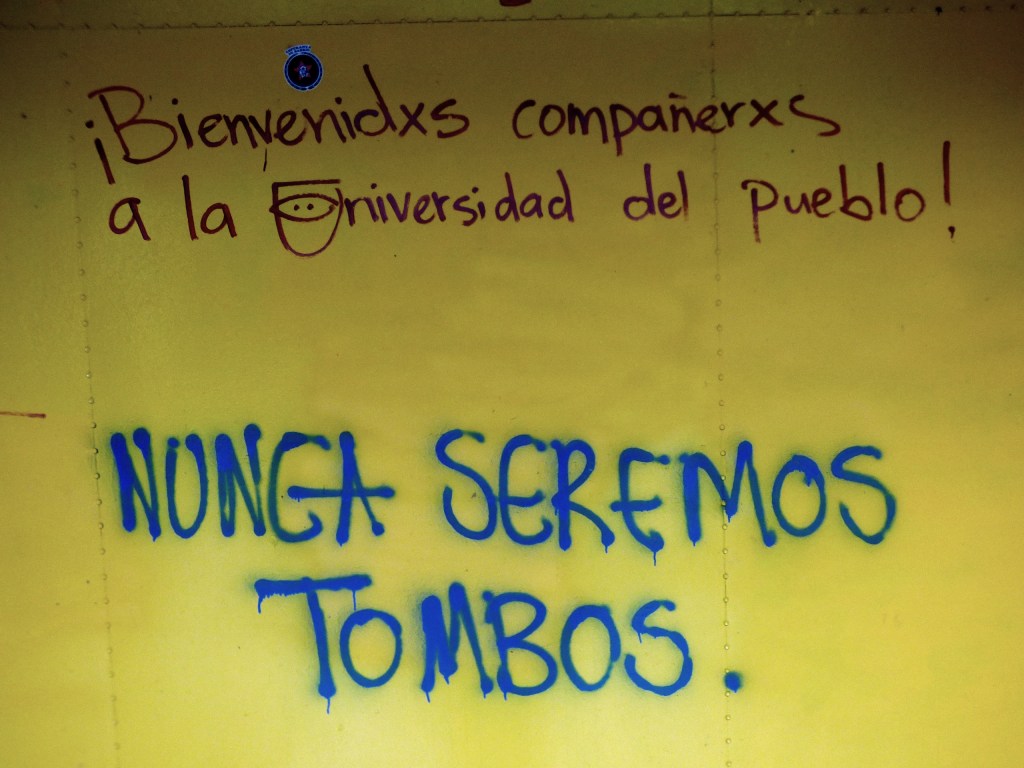 ¡Bienvenidxs compañerxs
a la Universidad del pueblo!
NUNCA SEREMOS
TOMBOS.